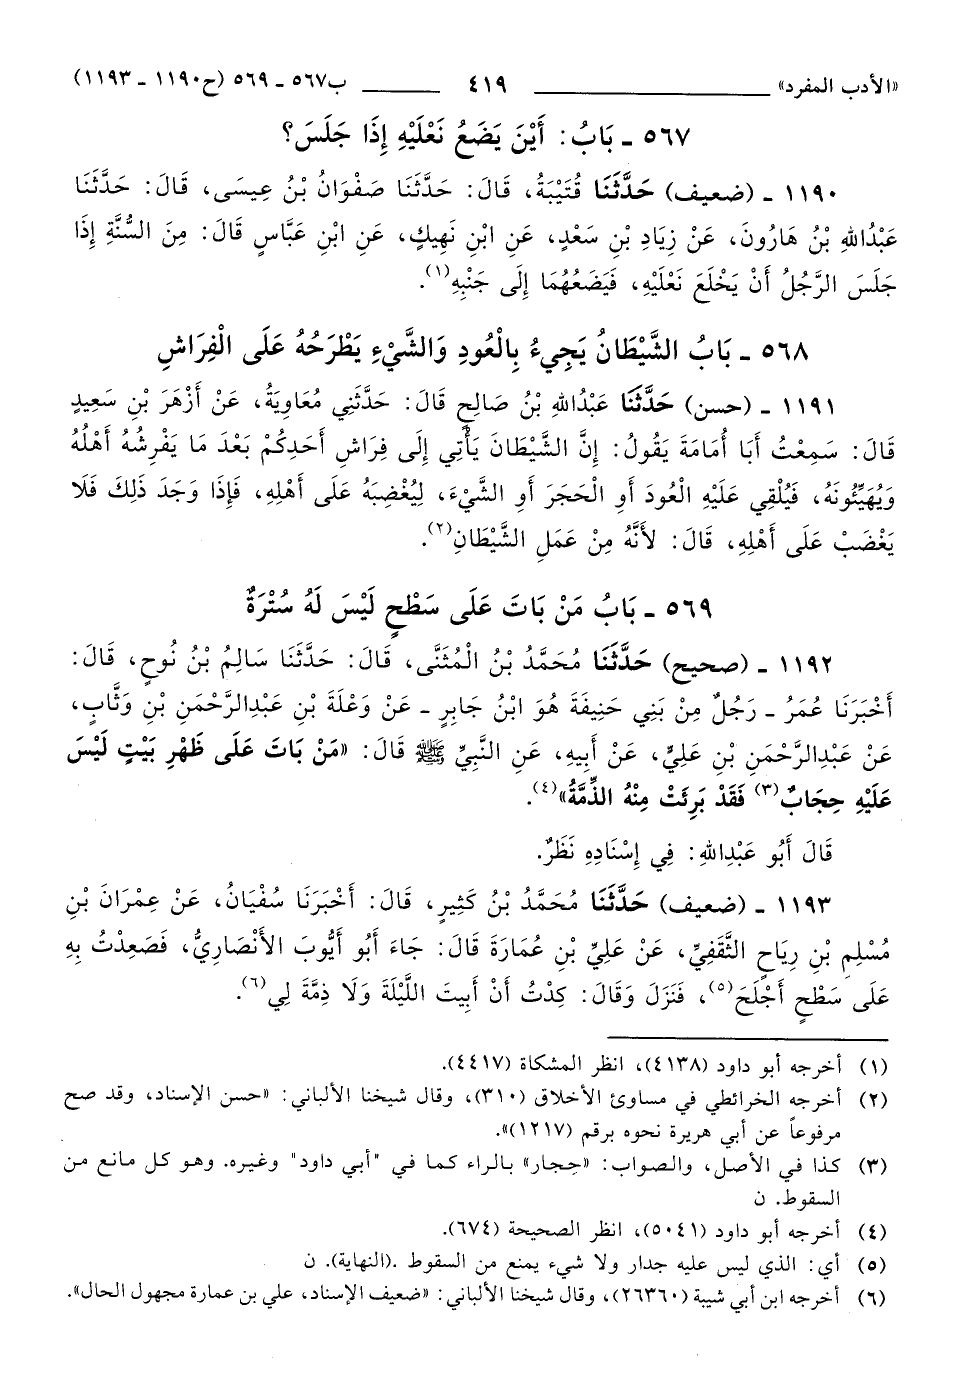 «الأدب المفرد» ٤١٩ ب٥٦٧ ـ ٥٦٩ (ح١١٩٠ ـ ١١٩٣)
٥٦٧ ـ بَابُ: أَيْنَ يَضَعُ نَعْلَيْهِ إِذَا جَلَسَ؟
١١٩٠ ـ (ضعيف) حَدَّثَنَا قُتَيْبَةُ، قَالَ: حَدَّثَنَا صَفْوَانُ بْنُ عِيسَى، قَالَ: حَدَّثَنَا
عَبْدُاللهِ بْنُ هَارُونَ، عَنْ زِيَادِ بْنِ سَعْدٍ، عَنِ ابْنِ نَهِيكٍ، عَنِ ابْنِ عَبَّاسٍ قَالَ: مِنَ السُّنَّةِ إِذَا
جَلَسَ الرَّجُلُ أَنْ يَخْلَعَ نَعْلَيْهِ، فَيَضَعُهُمَا إِلَى جَنْبِهِ(١).
٥٦٨ ـ بَابُ الشَّيْطَانُ يَجِيءُ بِالْعُودِ وَالشَّيْءِ يَطْرَحُهُ عَلَى الْفِرَاشِ
١١٩١ ـ (حسن) حَدَّثَنَا عَبْدُاللهِ بْنُ صَالِحٍ قَالَ: حَدَّثَنِي مُعَاوِيَةُ، عَنْ أَزْهَرَ بْنِ سَعِيدٍ
قَالَ: سَمِعْتُ أَبَا أُمَامَةَ يَقُولُ: إِنَّ الشَّيْطَانَ يَأْتِي إِلَى فِرَاشِ أَحَدِكُمْ بَعْدَ مَا يَفْرِشُهُ أَهْلُهُ
وَيُهَيِّئُونَهُ، فَيُلْقِي عَلَيْهِ الْعُودَ أَوِ الْحَجَرَ أَوِ الشَّيْءَ، لِيُغْضِبَهُ عَلَى أَهْلِهِ، فَإِذَا وَجَدَ ذَلِكَ فَلَا
يَغْضَبْ عَلَى أَهْلِهِ، قَالَ: لأَنَّهُ مِنْ عَمَلِ الشَّيْطَانِ(٢).
٥٦٩ ـ بَابُ مَنْ بَاتَ عَلَى سَطْحٍ لَيْسَ لَهُ سُتْرَةٌ
١١٩٢ ـ (صحيح) حَدَّثَنَا مُحَمَّدُ بْنُ الْمُثَنَّى، قَالَ: حَدَّثَنَا سَالِمُ بْنُ نُوحٍ، قَالَ:
أَخْبَرَنَا عُمَرُ ـ رَجُلٌ مِنْ بَنِي حَنِيفَةَ هُوَ ابْنُ جَابِرٍ ـ عَنْ وَعْلَةَ بْنِ عَبْدِالرَّحْمَنِ بْنِ وَثَّابٍ،
عَنْ عَبْدِالرَّحْمَنِ بْنِ عَلِيٍّ، عَنْ أَبِيهِ، عَنِ النَّبِيِّ ﷺ قَالَ: «مَنْ بَاتَ عَلَى ظَهْرِ بَيْتٍ لَيْسَ
عَلَيْهِ حِجَابٌ(٣) فَقَدْ بَرِئَتْ مِنْهُ الذِّمَّةُ»(٤).
قَالَ أَبُو عَبْدِاللهِ: فِي إِسْنَادِهِ نَظَرٌ.
١١٩٣ ـ (ضعيف) حَدَّثَنَا مُحَمَّدُ بْنُ كَثِيرٍ، قَالَ: أَخْبَرَنَا سُفْيَانُ، عَنْ عِمْرَانَ بْنِ
مُسْلِمِ بْنِ رِيَاحٍ الثَّقَفِيِّ، عَنْ عَلِيِّ بْنِ عُمَارَةَ قَالَ: جَاءَ أَبُو أَيُّوبَ الأَنْصَارِيُّ، فَصَعِدْتُ بِهِ
عَلَى سَطْحٍ أَجْلَحَ(٥)، فَنَزَلَ وَقَالَ: كِدْتُ أَنْ أَبِيتَ اللَّيْلَةَ وَلَا ذِمَّةَ لِي(٦).
(١) أخرجه أبو داود (٤١٣٨)، انظر المشكاة (٤٤١٧).
(٢) أخرجه الخرائطي في مساوئ الأخلاق (٣١٠)، وقال شيخنا الألباني: «حسن الإسناد، وقد صح
مرفوعاً عن أبي هريرة نحوه برقم (١٢١٧)».
(٣) كذا في الأصل، والصواب: «حِجار» بالراء كما في "أبي داود" وغيره. وهو كل مانع من
السقوط. ن
(٤) أخرجه أبو داود (٥٠٤١)، انظر الصحيحة (٦٧٤).
(٥) أي: الذي ليس عليه جدار ولا شيء يمنع من السقوط .(النهاية). ن
(٦) أخرجه ابن أبي شيبة (٢٦٣٦٠)، وقال شيخنا الألباني: «ضعيف الإسناد، علي بن عمارة مجهول الحال».